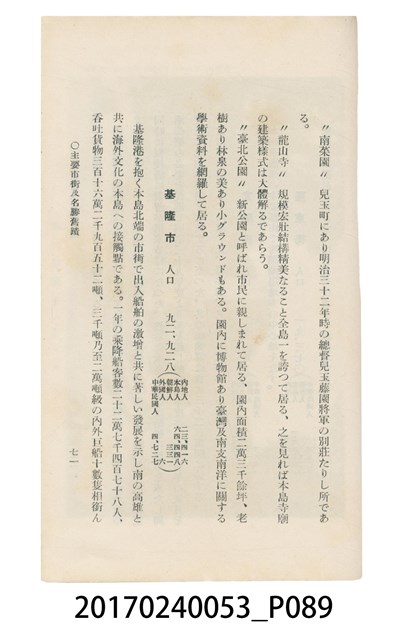 〃南菜園〃 兒玉町にあり明治三十二年時の總督兒玉藤園將軍の別莊たりし所であ
る。
〃龍山寺〃 規模宏壯結構精美なること全島一を誇つて居る、之を見れば本島寺廟
の建築樣式は大體解るであらう。
〃臺北公園〃 新公園と呼ばれ市民に親しまれて居る、園內面積二萬三千餘坪、老
樹あり林泉の美あり小グラウンドもある。園內に博物館あり臺灣及南支南洋に關する
學術資料を網羅して居る。
基隆市 人口 九二、九二八
內地人 二三、四一六
本島人 六四、四四八
朝鮮人 三三一
外國人 六
中華民國人 四、七二七
基隆港を抱く本島北端の市街で出入船舶の激增と共に著しい發展を示し南の高雄と
共に海外文化の本島への接觸點である。一年の乘降船客數二十二萬七千四百七十八人、
吞吐貨物三百十六萬二千九百五十二噸、三千噸乃至二萬噸級の內外巨船十數隻相銜ん
〇主要市街及名勝舊蹟
七一
20170240053_P089